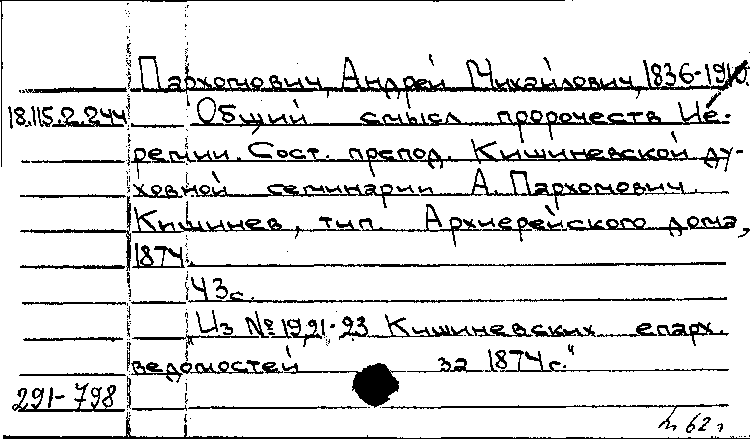 Пархомович, Андрей Михайлович, 1836-1910.
18.115.2.244 Общий смысл пророчеств Ие-
ремии. Сост. препод. Кишиневской ду-
ховной семинарии А. Пархомович.
Кишинев, тип. Архиерейского дома,
1874.
43 с.
"Из № 19,21-23 Кишиневских епарх.
ведомостей за 1874 г."
291-798
62 г